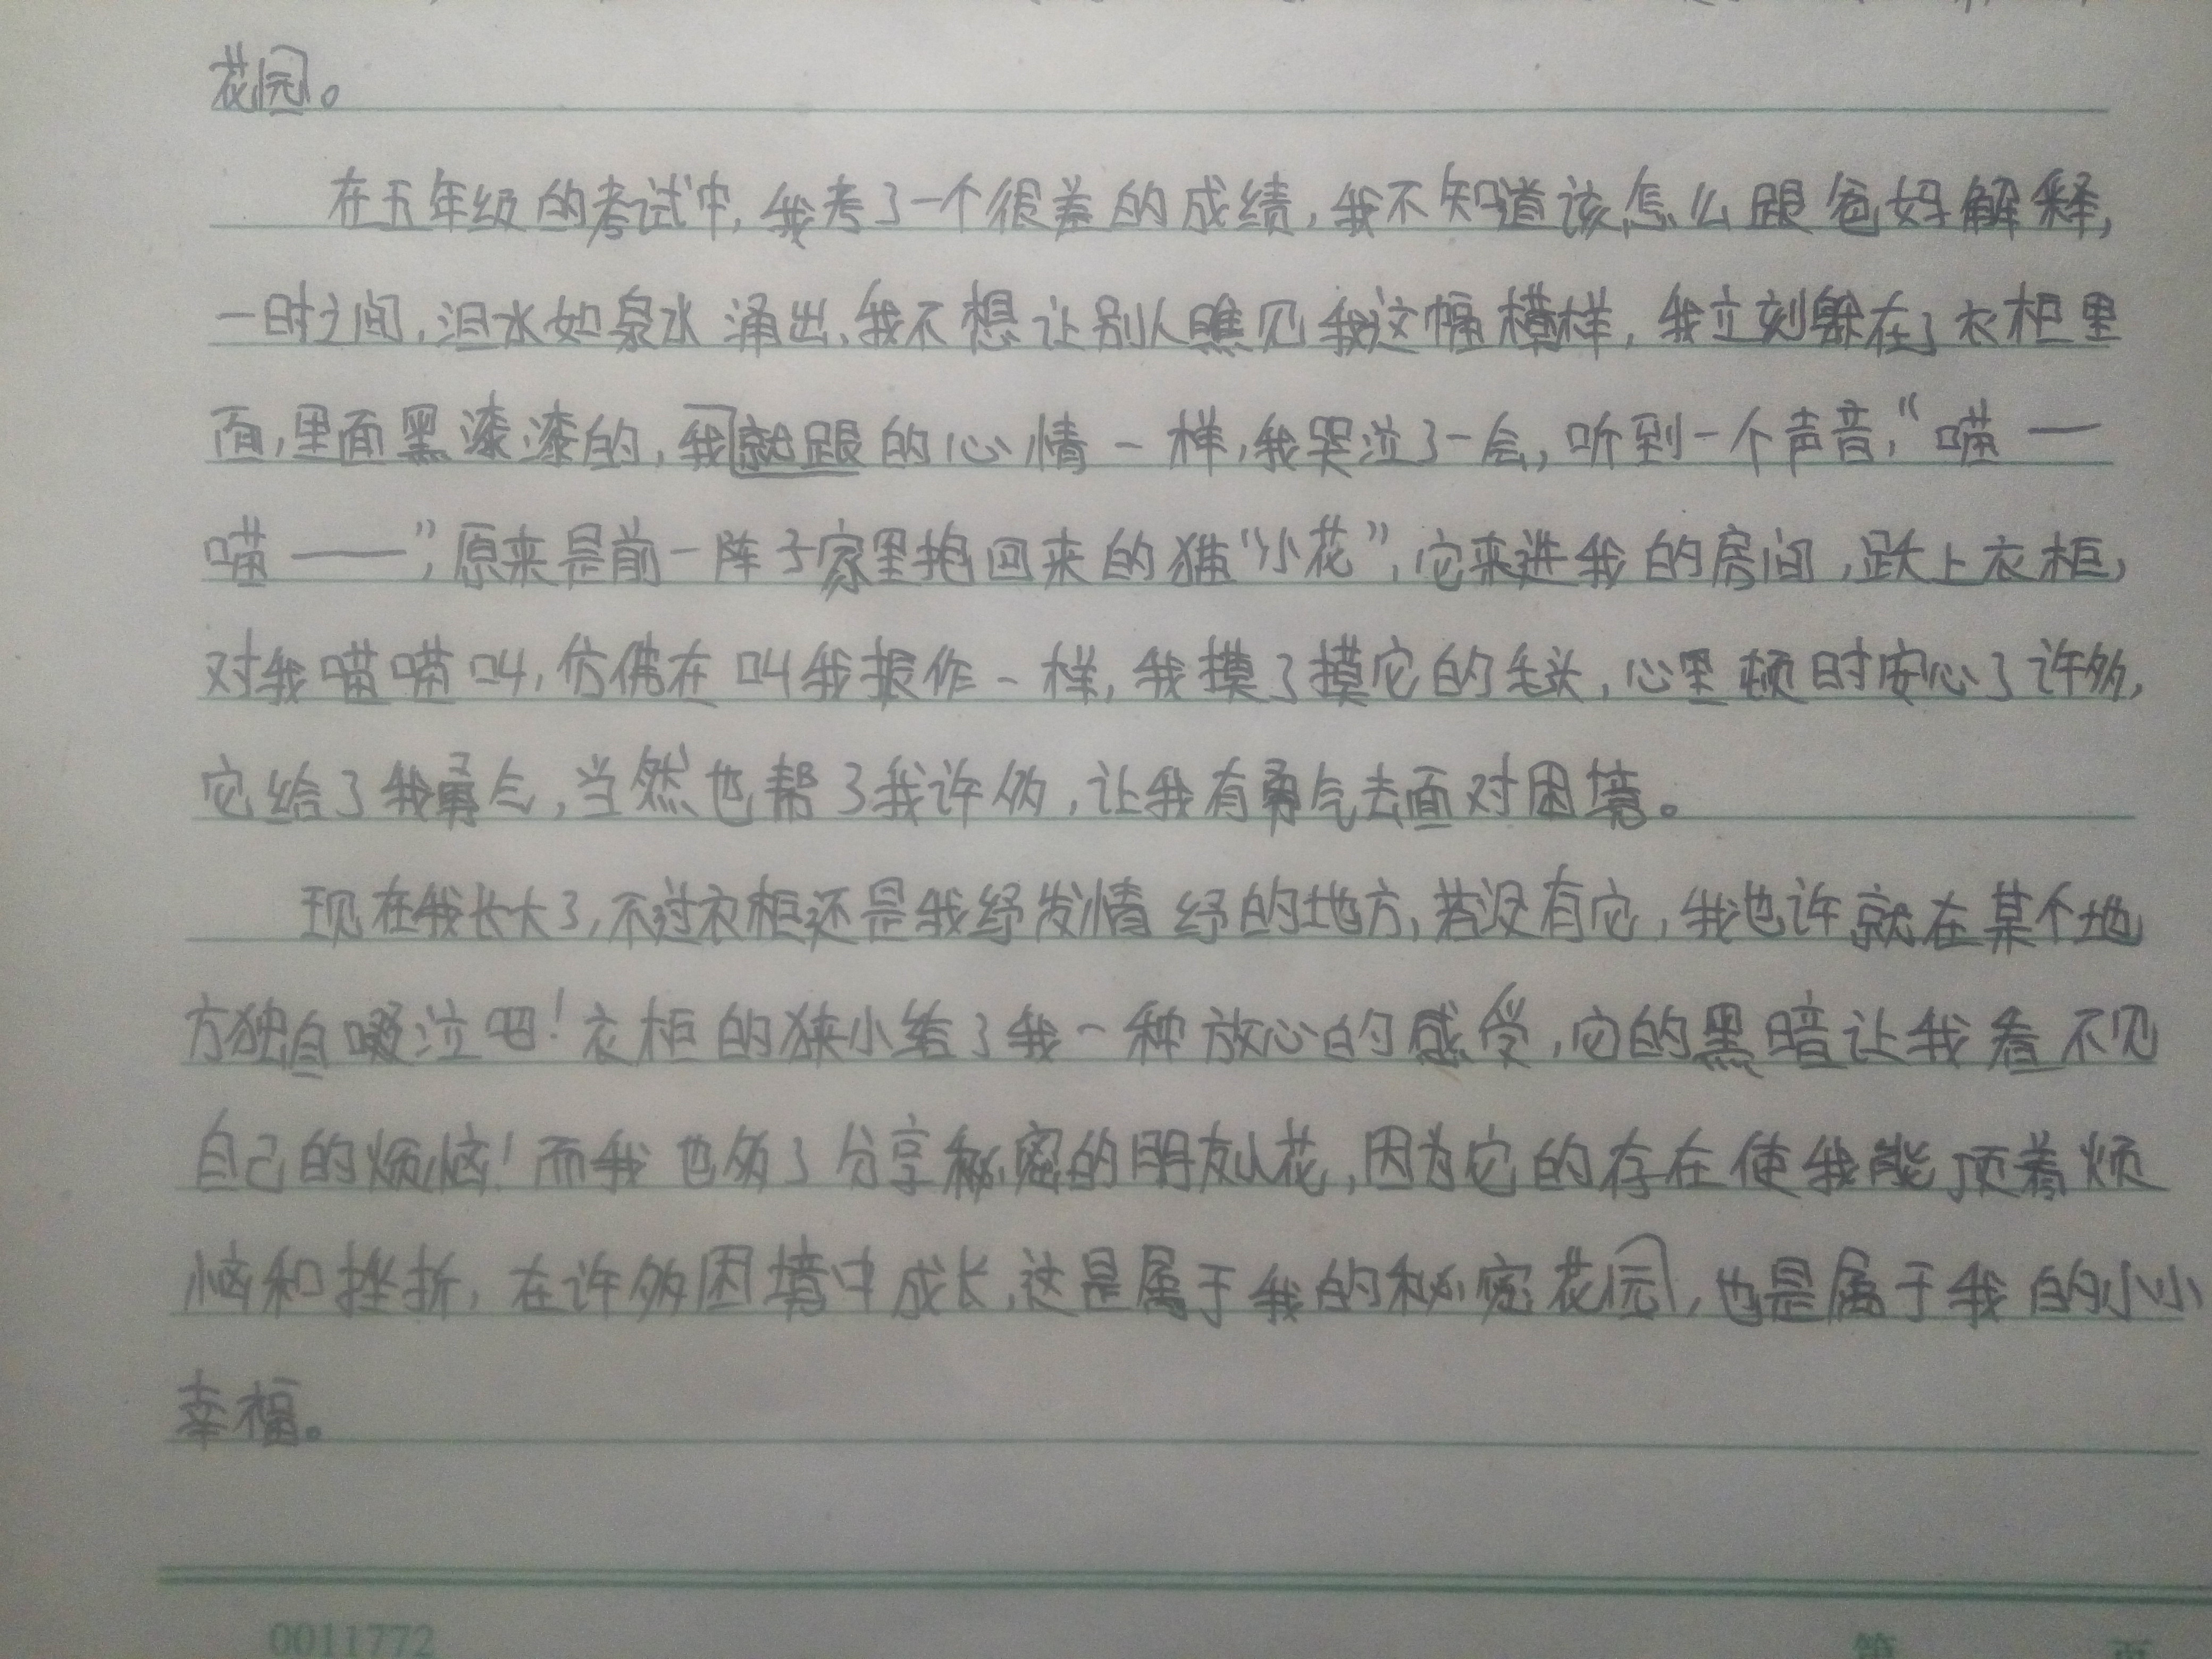 花园。
在五年级的考试中,我考了一个很差的成绩,我不知道该怎么跟爸妈解释,
一时之间,泪水如泉水涌出,我不想让别人瞧见我这幅模样,我立刻躲在了衣柜里
面,里面黑漆漆的,我就跟的心情一样,我哭泣了一会,听到一个声音,“喵—
喵——”,原来是前一阵子家里抱回来的猫“小花”,它来进我的房间,跃上衣柜,
对我喵喵叫,仿佛在叫我振作一样,我摸了摸它的毛头,心里顿时安心了许多,
它给了我勇气,当然也帮了我许多,让我有勇气去面对困境。
现在我长大了,不过衣柜还是我纾发情纾的地方,若没有它,我也许就在某个地
方独自啜泣吧!衣柜的狭小给了我一种放心的感受,它的黑暗让我看不见
自己的烦恼!而我也多了分享秘密的朋友小花,因为它的存在使我能顶着烦
恼和挫折,在许多困境中成长,这是属于我的秘密花园,也是属于我的小小
幸福。
0011772
第 页